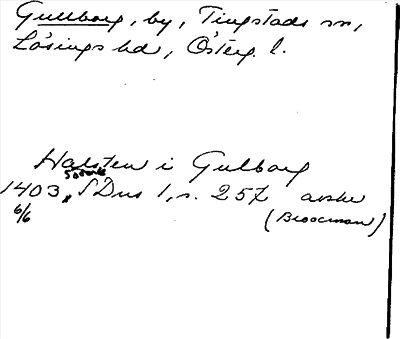 Gullborg, by, Tingstads sn,
Lösings hd, Österg. l.
Halsten i Gulborg
1403 SDns 1, s. 257 avskr
6/6 (Broocman)